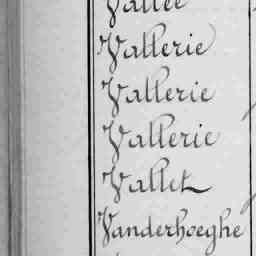 Vallée
Vallerie
Vallerie
Vallerie
Vallet
Vanderhoeghe